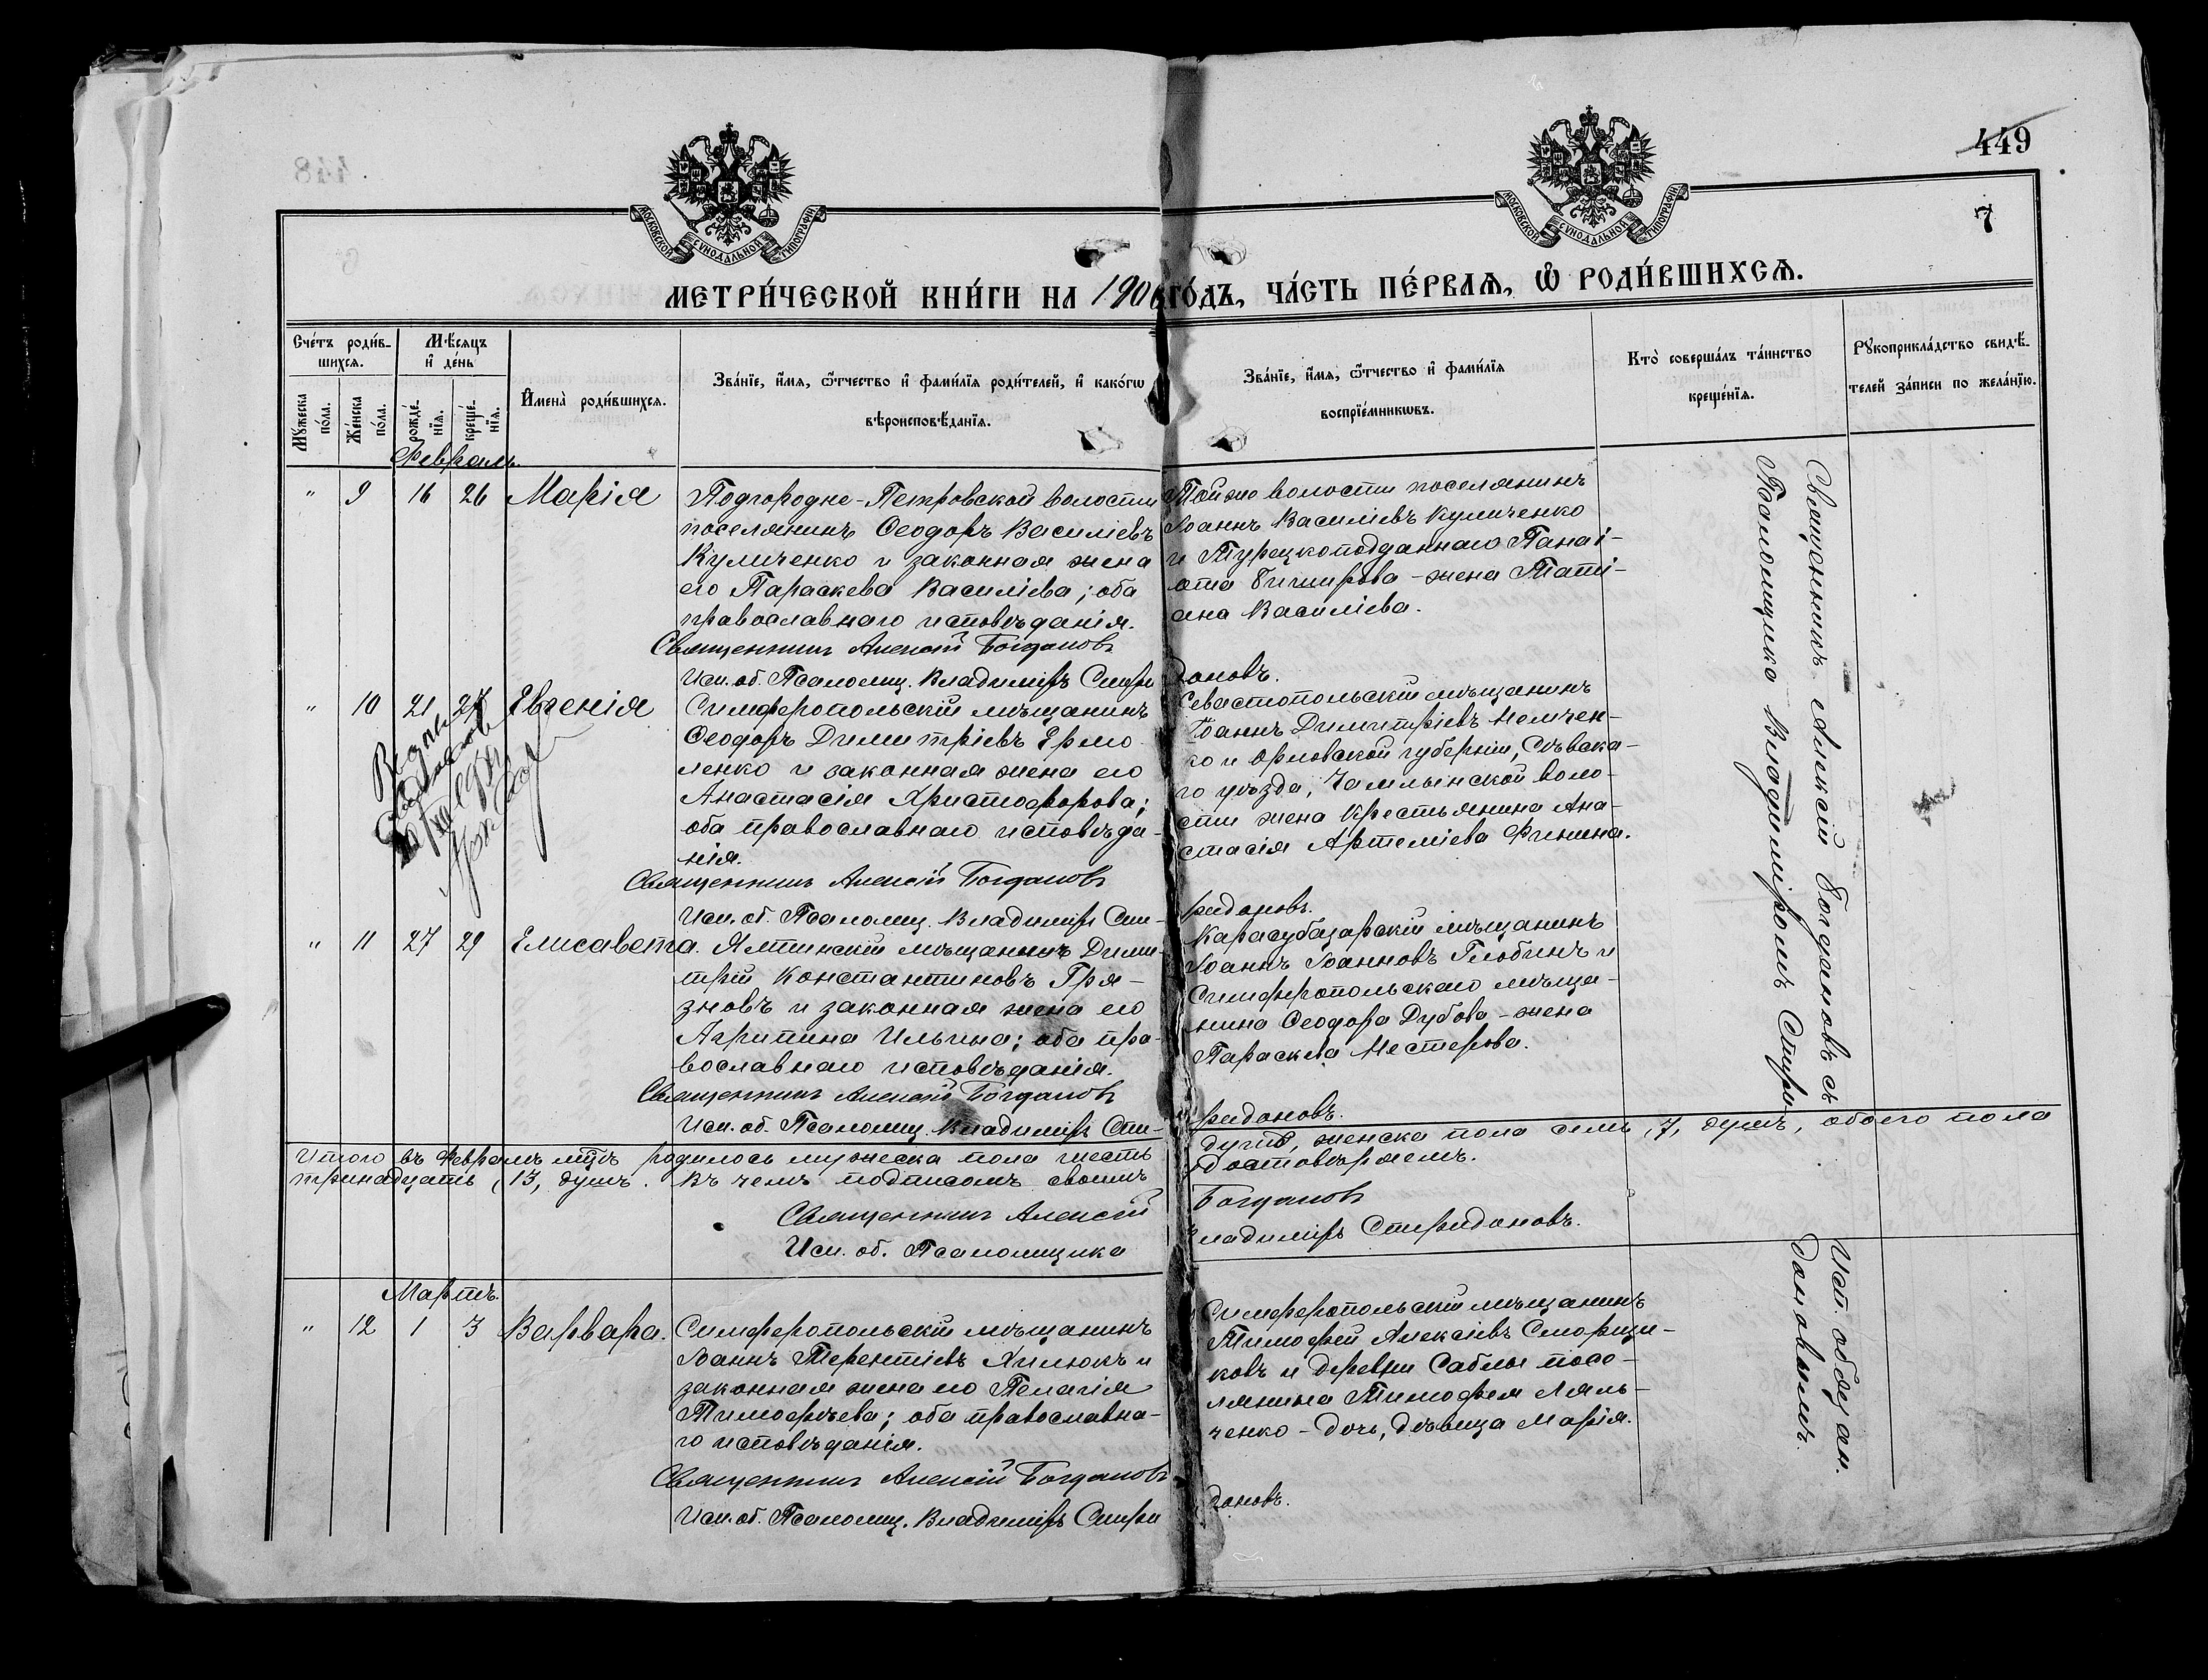 449
7
МОСКОВСКОЙ СѴНОДАЛЬНОЙ ТИПОГРАФІИ
МОСКОВСКОЙ СѴНОДАЛЬНОЙ ТИПОГРАФІИ
МЕТРИ́ЧЕСКОЙ КНИ́ГИ НА 190 ГО́ДЪ, ЧА́СТЬ ПЕ́РВАѦ, Ѡ҆ РОДИ́ВШИХСѦ.
Сче́тъ роди́в-
шихсѧ.
Мѣ́сѧцъ
и҆ де́нь
Мꙋ́жеска по́ла.
Же́нска по́ла.
рожде́-нїѧ.
креще́-нїѧ.
И҆мена̀ роди́вшихсѧ.
Зва́нїе, и҆́мѧ, ѻ҆́тчество и҆ фами́лїѧ роди́телей, и҆ како́гѡ
вѣроисповѣ́данїѧ.
Зва́нїе, и҆́мѧ, ѻ҆́тчество и҆ фами́лїѧ
воспрїе́мникѡвъ.
Кто̀ соверша́лъ та́инство
креще́нїѧ.
Рꙋкоприкла́дство свидѣ́-
телей за́писи по жела́нїю.
Февраль.
" 9 16 26 Марія
Подгородне-Петровской волости
поселянинъ Ѳеодоръ Василіевъ
Куличенко и законная жена
его Параскева Василіева; оба
православнаго исповѣданія.
Священникъ Алексій Богдановъ
Исп. об. Псаломщ. Владиміръ Спири
Той же волости поселянинъ
Іоаннъ Василіевъ Куличенко
и Турецкоподданнаго Панаі-
ота жена Таті-
ана Василіева.
доновъ.
" 10 21 27 Евгенія
Симферопольскій мѣщанинъ
Ѳеодоръ Димитріевъ Ермо-
ленко и законная жена его
Анастасія Христофорова;
оба православнаго исповѣда-
нія.
Священникъ Алексій Богдановъ
Исп. об. Псаломщ. Владиміръ Спи-
Севастопольскій мѣщанинъ
Іоаннъ Димитріевъ Немчен-
ко и Орловской губерніи, Сѣвска-
го уѣзда, Чамлыжской воло-
сти жена крестьянина Ана-
стасія Артеміева Финина.
ридоновъ.
" 11 27 29 Елисавета.
Ялтинскій мѣщанинъ Дими-
трій Константиновъ Гря-
зновъ и законная жена его
Агрипина Ильина; оба пра-
вославнаго исповѣданія.
Священникъ Алексій Богдановъ
Исп. об. Псаломщ. Владиміръ Спи-
Карасубазарскій мѣщанинъ
Іоаннъ Іоанновъ Глобинъ и
Симферопольскаго мѣща-
нина Ѳеодора Дубова - жена
Параскева Нестерова.
ридоновъ.
Священникъ Алексій Богдановъ съ Исп. обязан.
Псаломщика Владиміромъ Спири доновымъ.
Итого въ Февралѣ мцѣ родилось мужеска пола шесть душъ, женска пола семь, 7, душъ, обоего пола
тринадцать, 13, душъ. Въ чемъ подписомъ своимъ удостовѣряемъ.
Священникъ Алексій Богдановъ
Исп. об. Псаломщика Владиміръ Спиридоновъ.
Мартъ.
" 12 1 3 Варвара.
Симферопольскій мѣщанинъ
Іоаннъ Терентіевъ Хилюкъ и
законная жена его Пелагія
Тимофѣева; оба православна-
го исповѣданія.
Священникъ Алексій Богдановъ
Исп. об. Псаломщ. Владиміръ Спири
Симферопольскій мѣщанинъ
Тимофей Алексіевъ Сморщи-
ковъ и деревни Саблы посе-
лянина Тимофея Ляль-
ченко - дочь, дѣвица Марія.
доновъ.